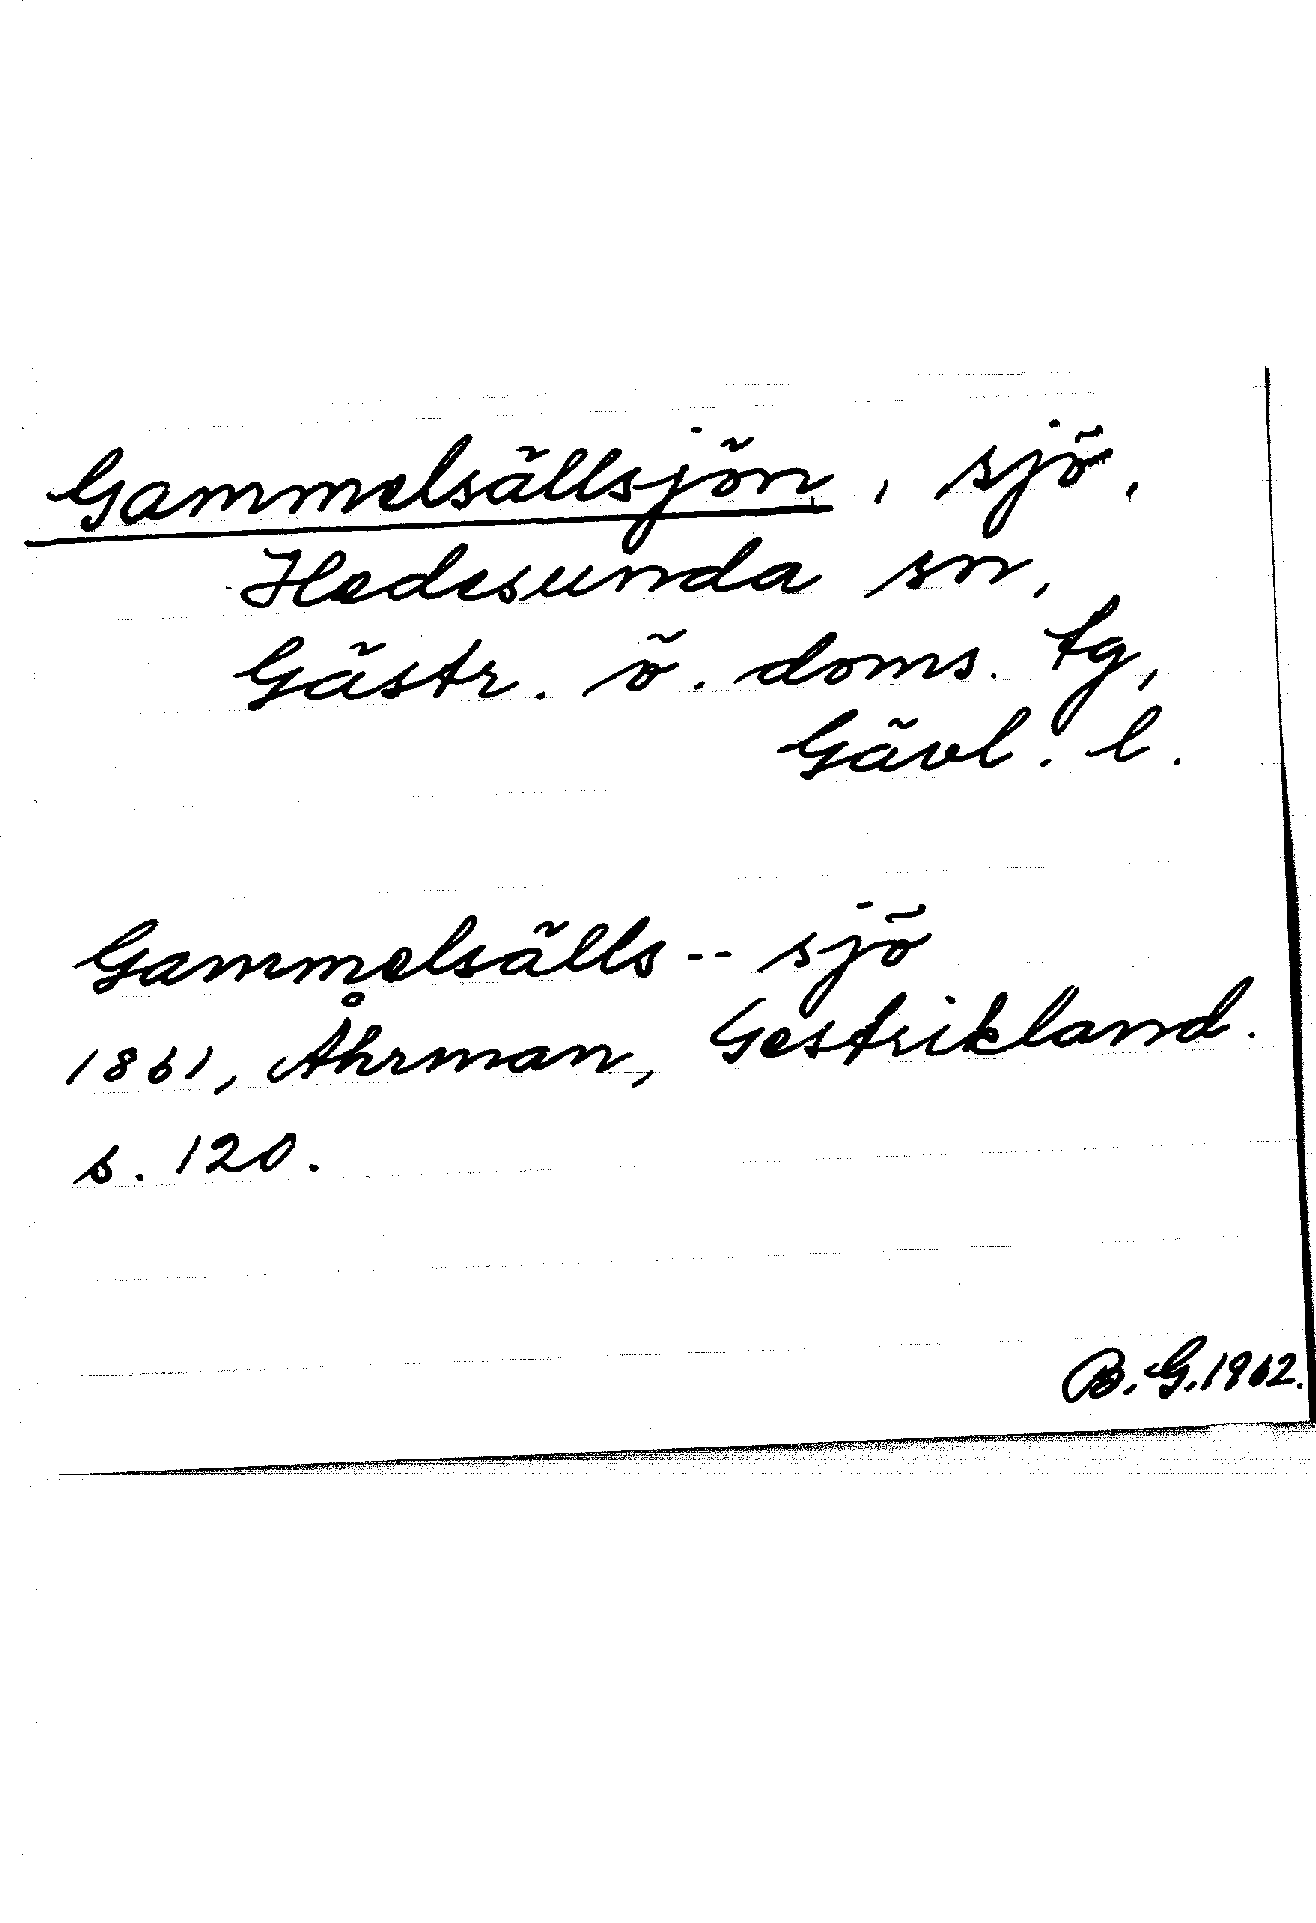 Gammelsällsjön, sjö,
Hedesunda sn,
Gästr. ö. doms. tg,
Gävl. l.
Gammelsälls -- sjö
1861, Åhrman, Gestrikland.
s. 120.
B. G. 1962.